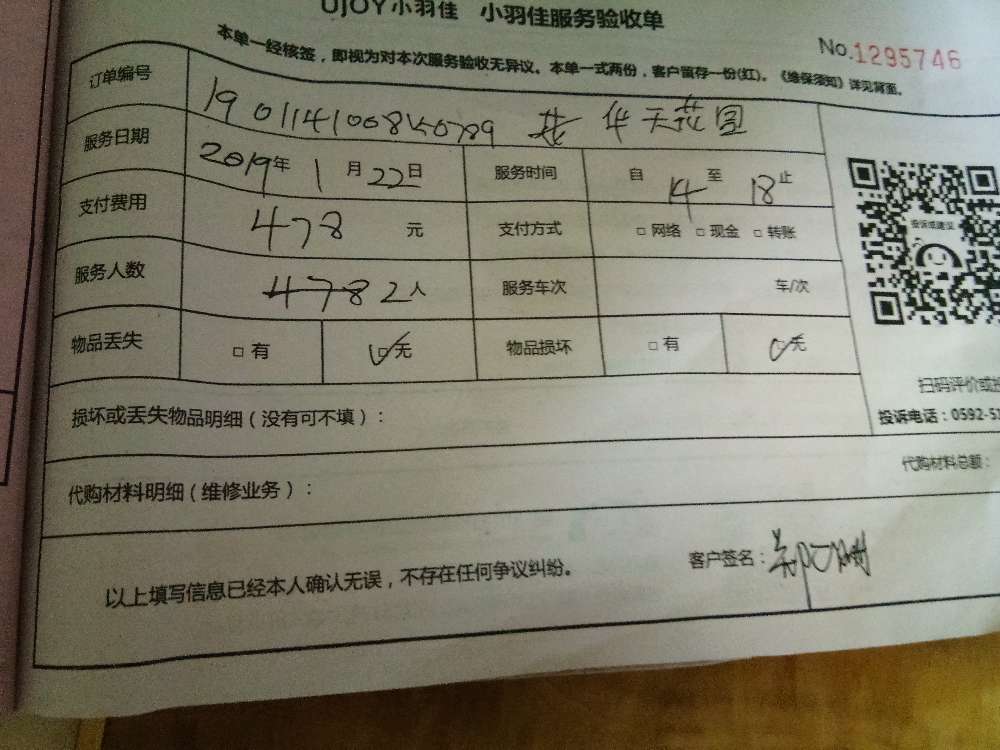 UJOY小羽佳 小羽佳服务验收单
No.1295746
本单一经核签，即视为对本次服务验收无异议。本单一式两份，客户留存一份(红)。《维保须知》详见背面。
订单编号 华天花园
服务日期 2019年1月22日 服务时间 自14至18止
支付费用 478元 支付方式 □网络 □现金 □转账
服务人数 478 2人 服务车次 车/次
物品丢失 □有 ☑无 物品损坏 □有 ☑无
投诉或建议
扫码评价或
投诉电话：0592-5
损坏或丢失物品明细（没有可不填）：
代购材料明细（维修业务）： 代购材料总额：
以上填写信息已经本人确认无误，不存在任何争议纠纷。 客户签名：